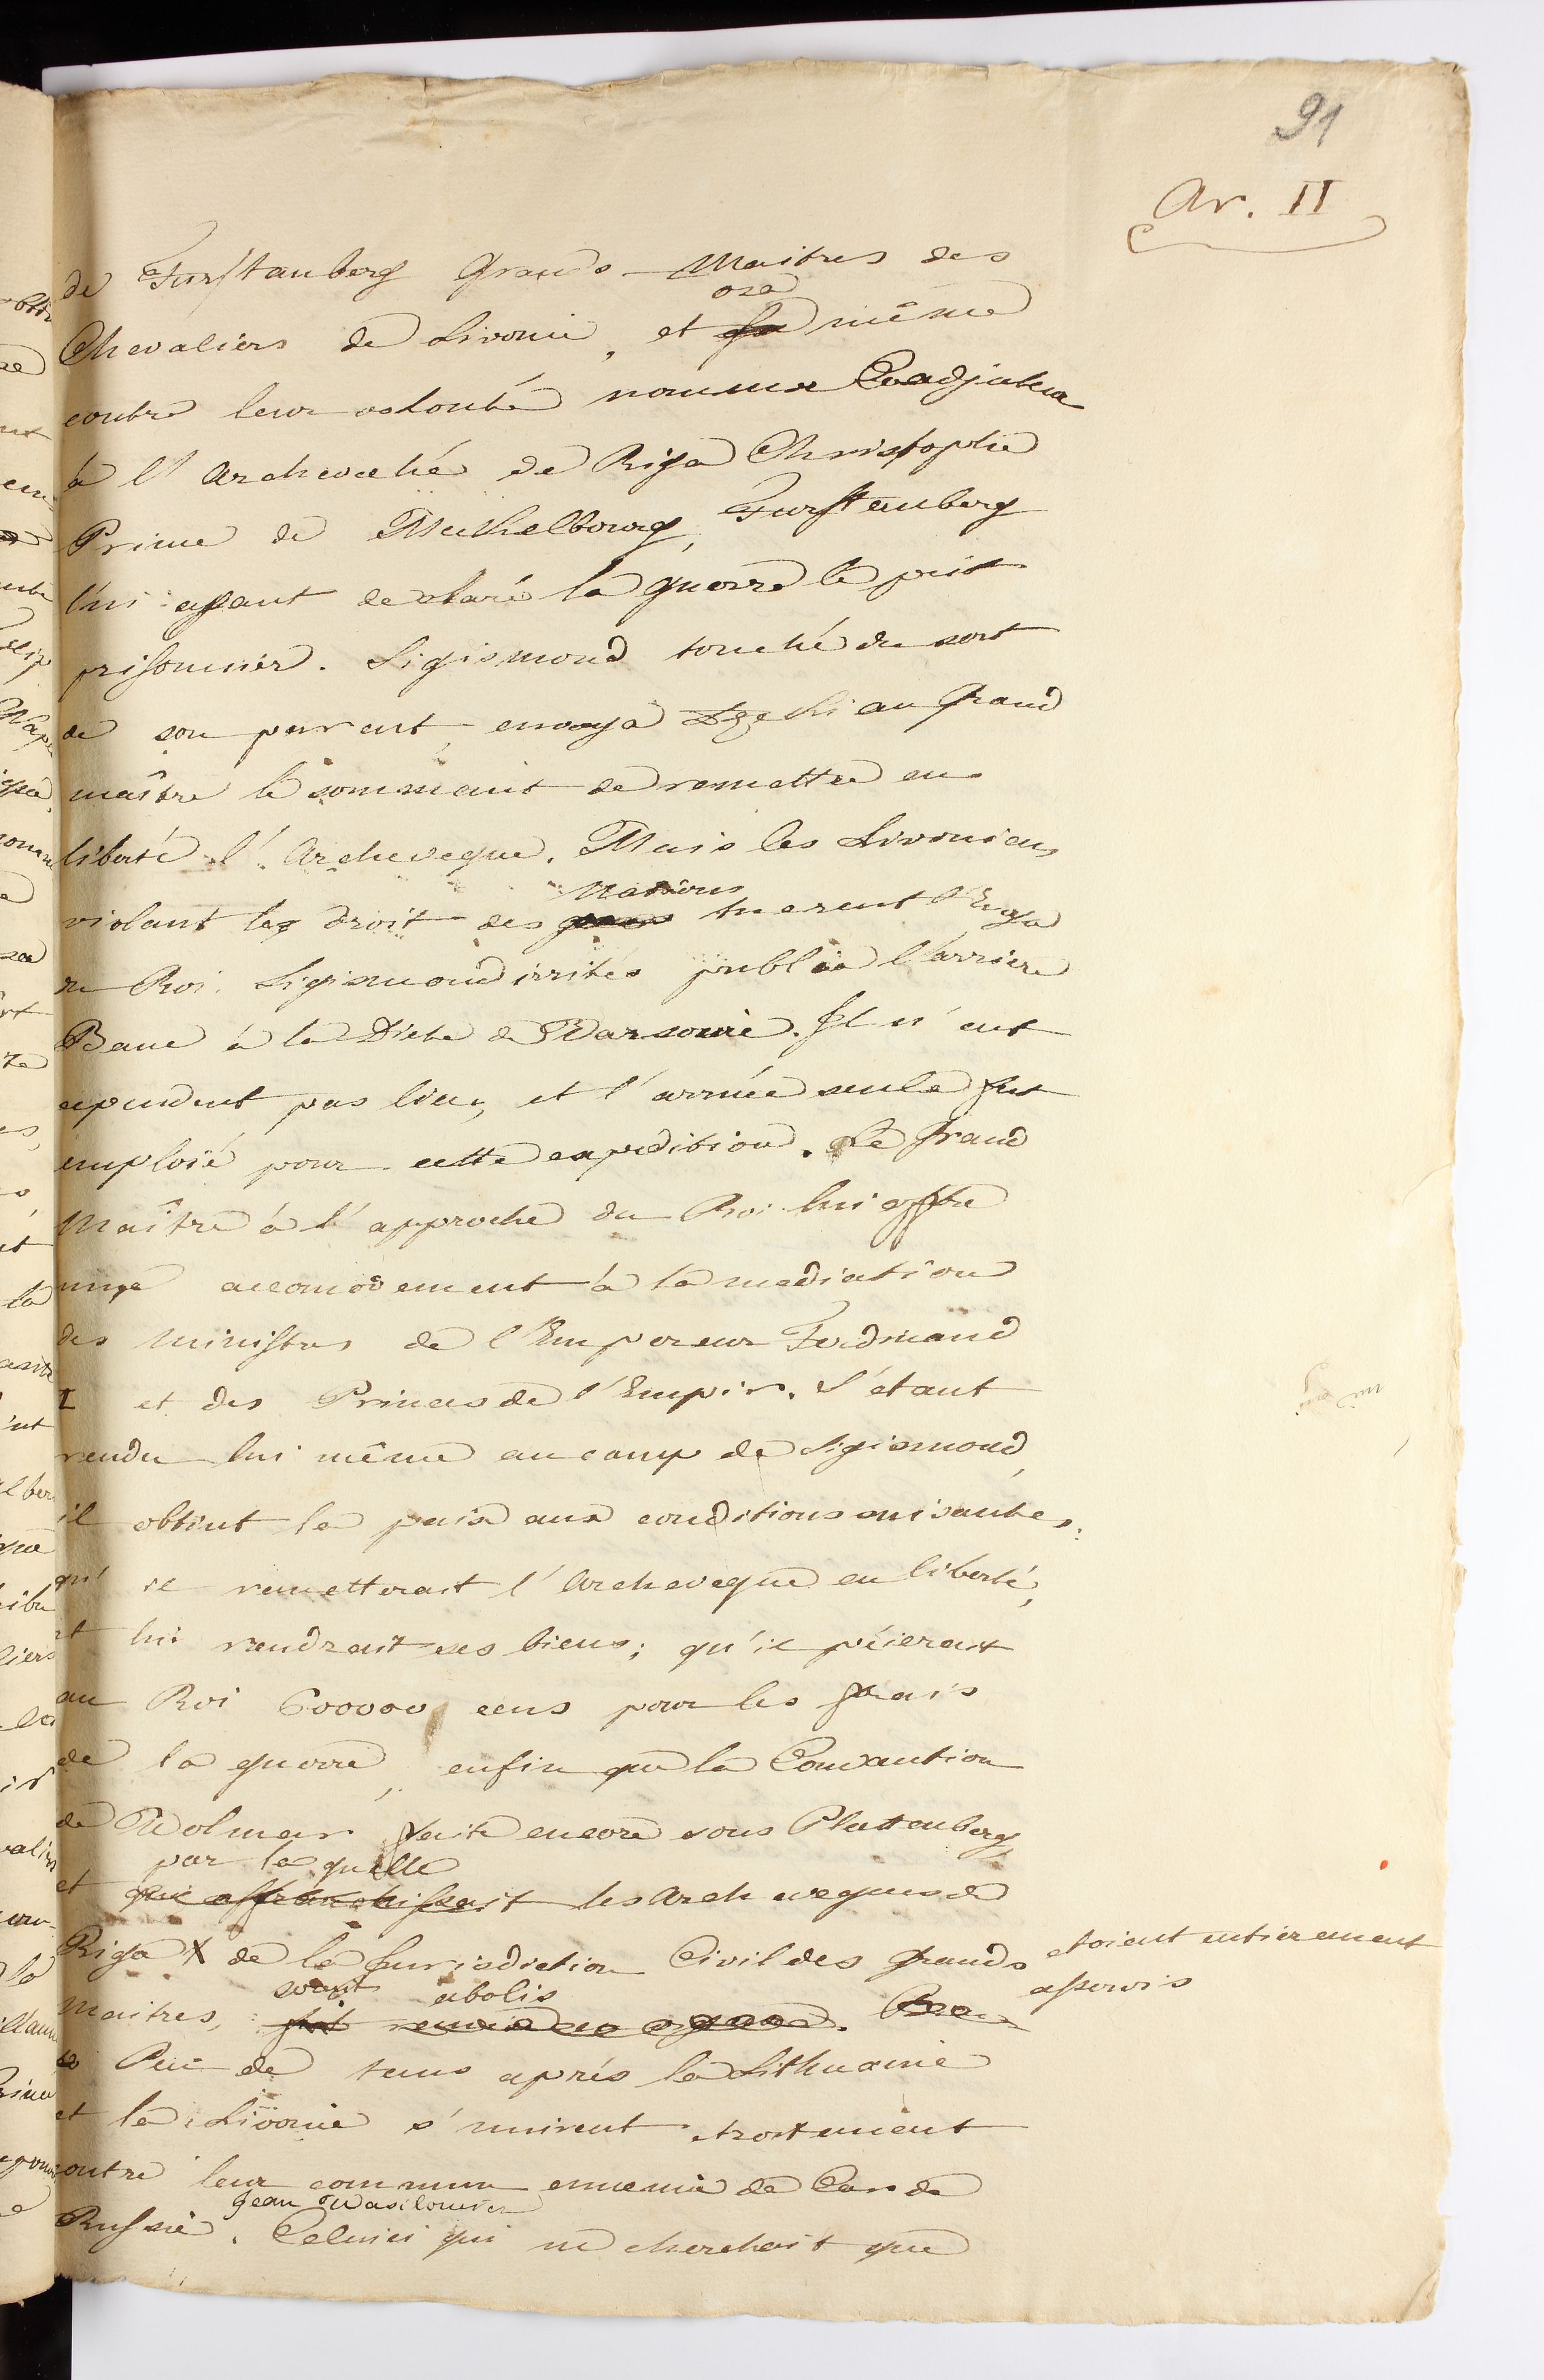 91
Ar. II
de Furstanberg Grands-Maitres des
osa
Chevaliers de Livonie, et même
contre leur volonté nommer Coadjuteur
à l'Archeveché de Riga Christophe
Prince de Mekelbourg, Furstenberg
lui ayant declaré la guerre le prit
prisonnier. Sigismond touché du sort
de son parent, envoya au Grand
maître le sommant de remettre en
liberté l'Archeveque. Mais les Livoniens
Nations
violant les droit des tuerent l'Envoyé
du Roi. Sigismond irrités publia l'arriere
Banc à la Diete de Warsovie. Il n'eut
cependent pas lieu, et l'armée seule fut
emploié pour cette expedition. Le Grand
Maître à l'approche du Roi lui offre
un accomodement à la mediation
des Ministres de l'Empereur Ferdinand
I et des Princes de l'Empir. S'étant
rendu lui même au camp de Sigismond,
il obtint la paix aux conditions suivantes:
qu'il remetterait l'Archeveque en liberté,
et lui rendrait ses biens; qu'il péierait
au Roi 600000 ecus pour les frais
de la guerre, enfin que la Convantion
de Wolmar faite encore sous Plattenberg,
par la quelle
et qui affranchissait les Archeveques de
Riga X de la Jurisdiction Civil des Grands
etoient entierement
asservis
soint abolis
Maitres, fut
Peu de tems après la Lithuanie
et la Livonie s'unirent etroitement
contre leur commun ennemie de Car de
Jean Wasilowicz
Russie. Celuici qui ne cherchait que